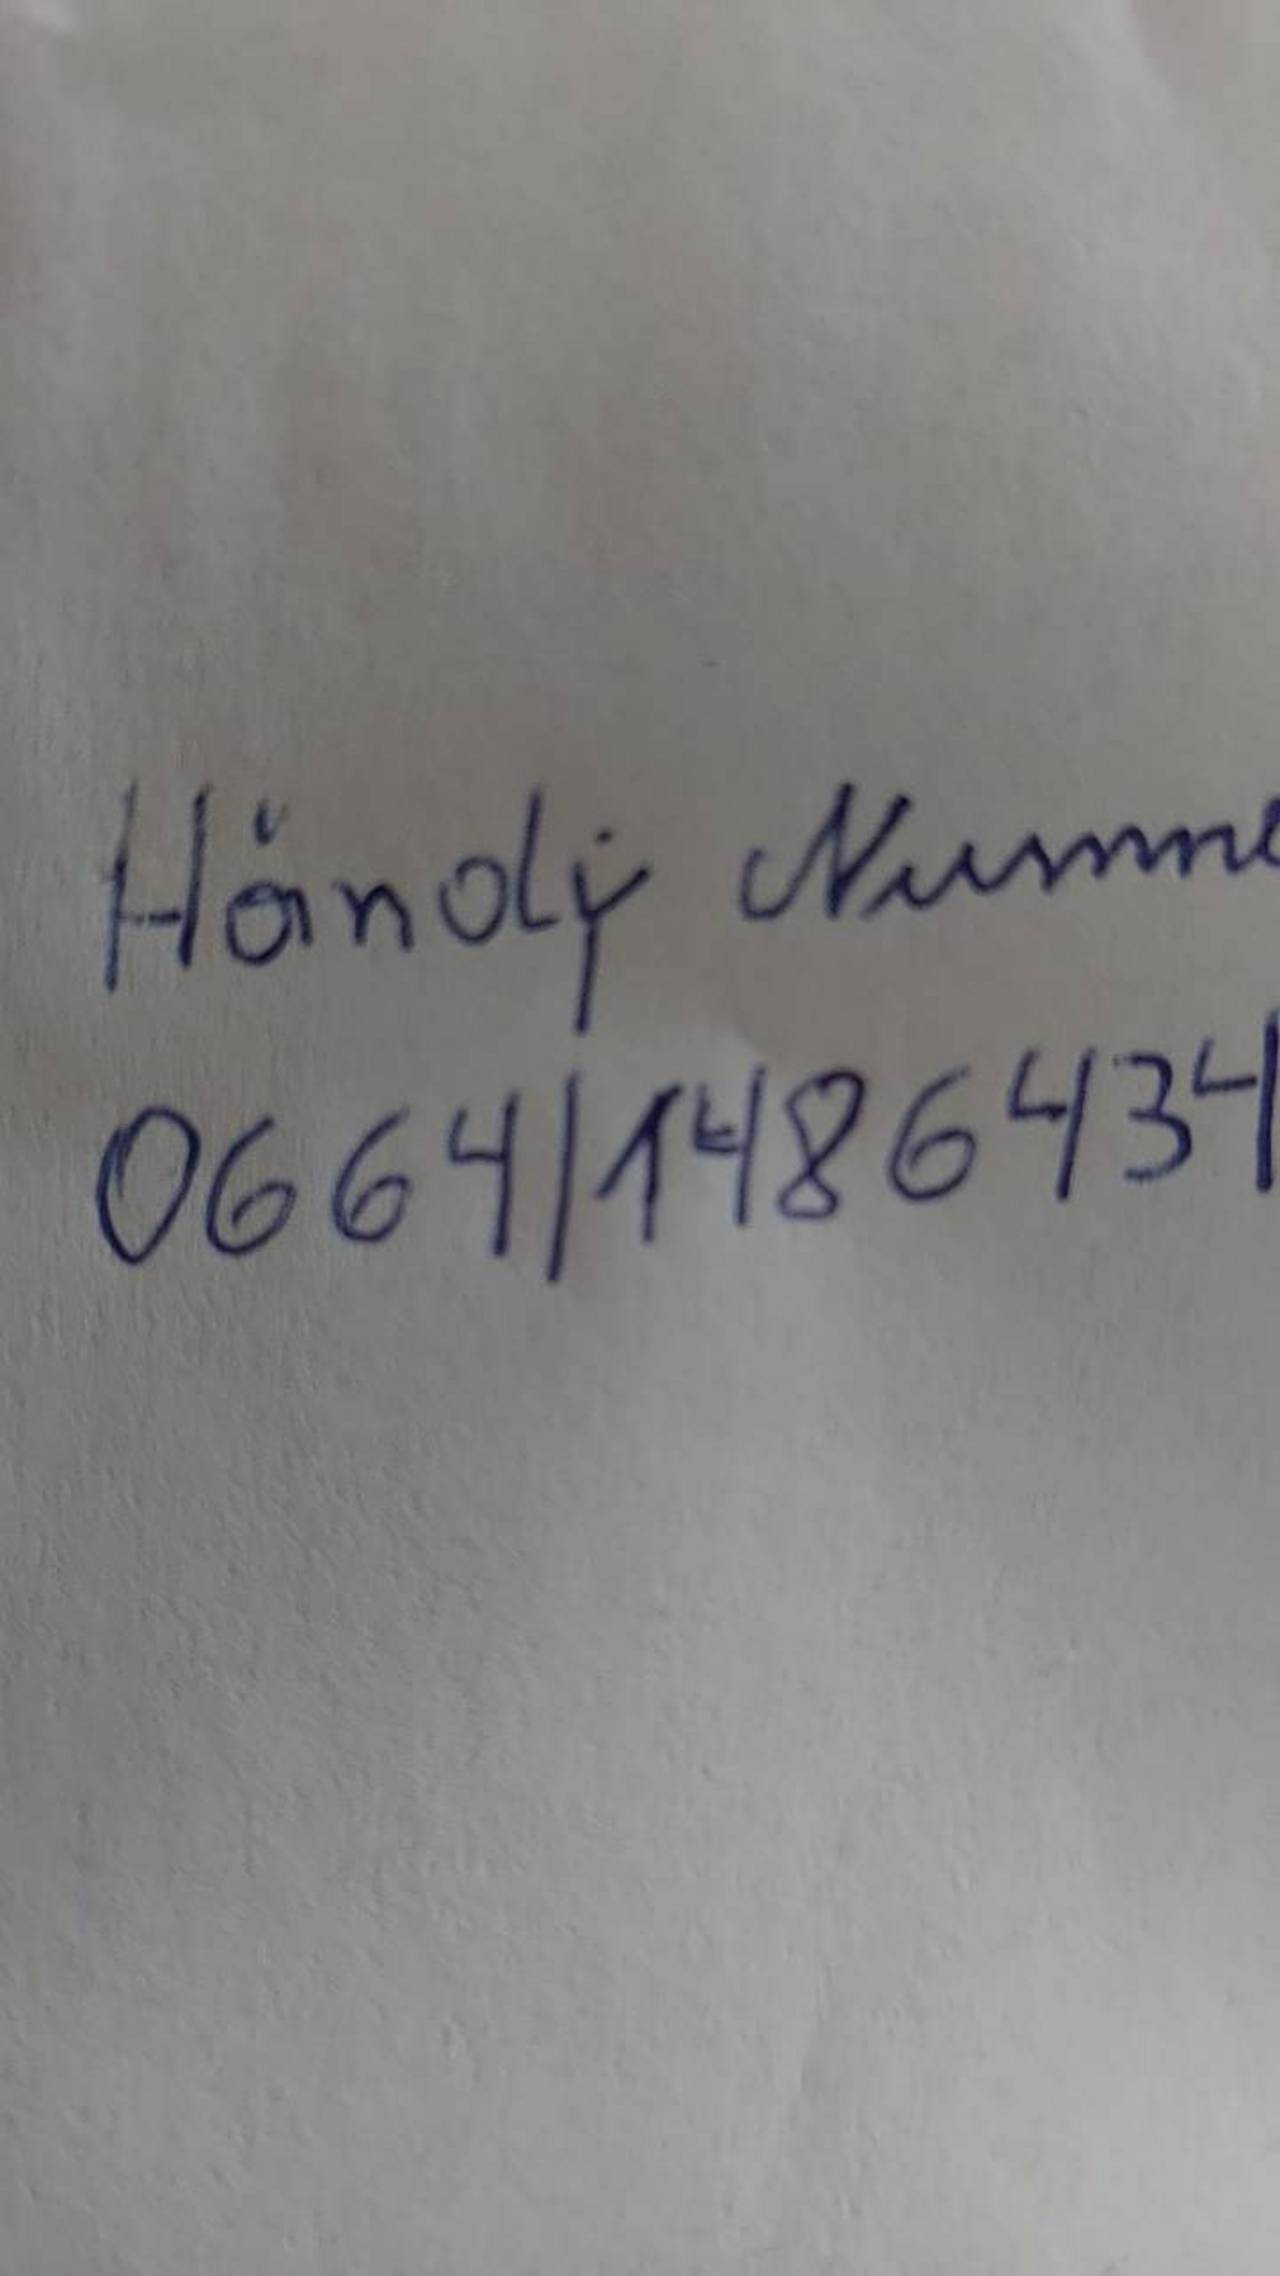 Händy Numme
0664/1486434